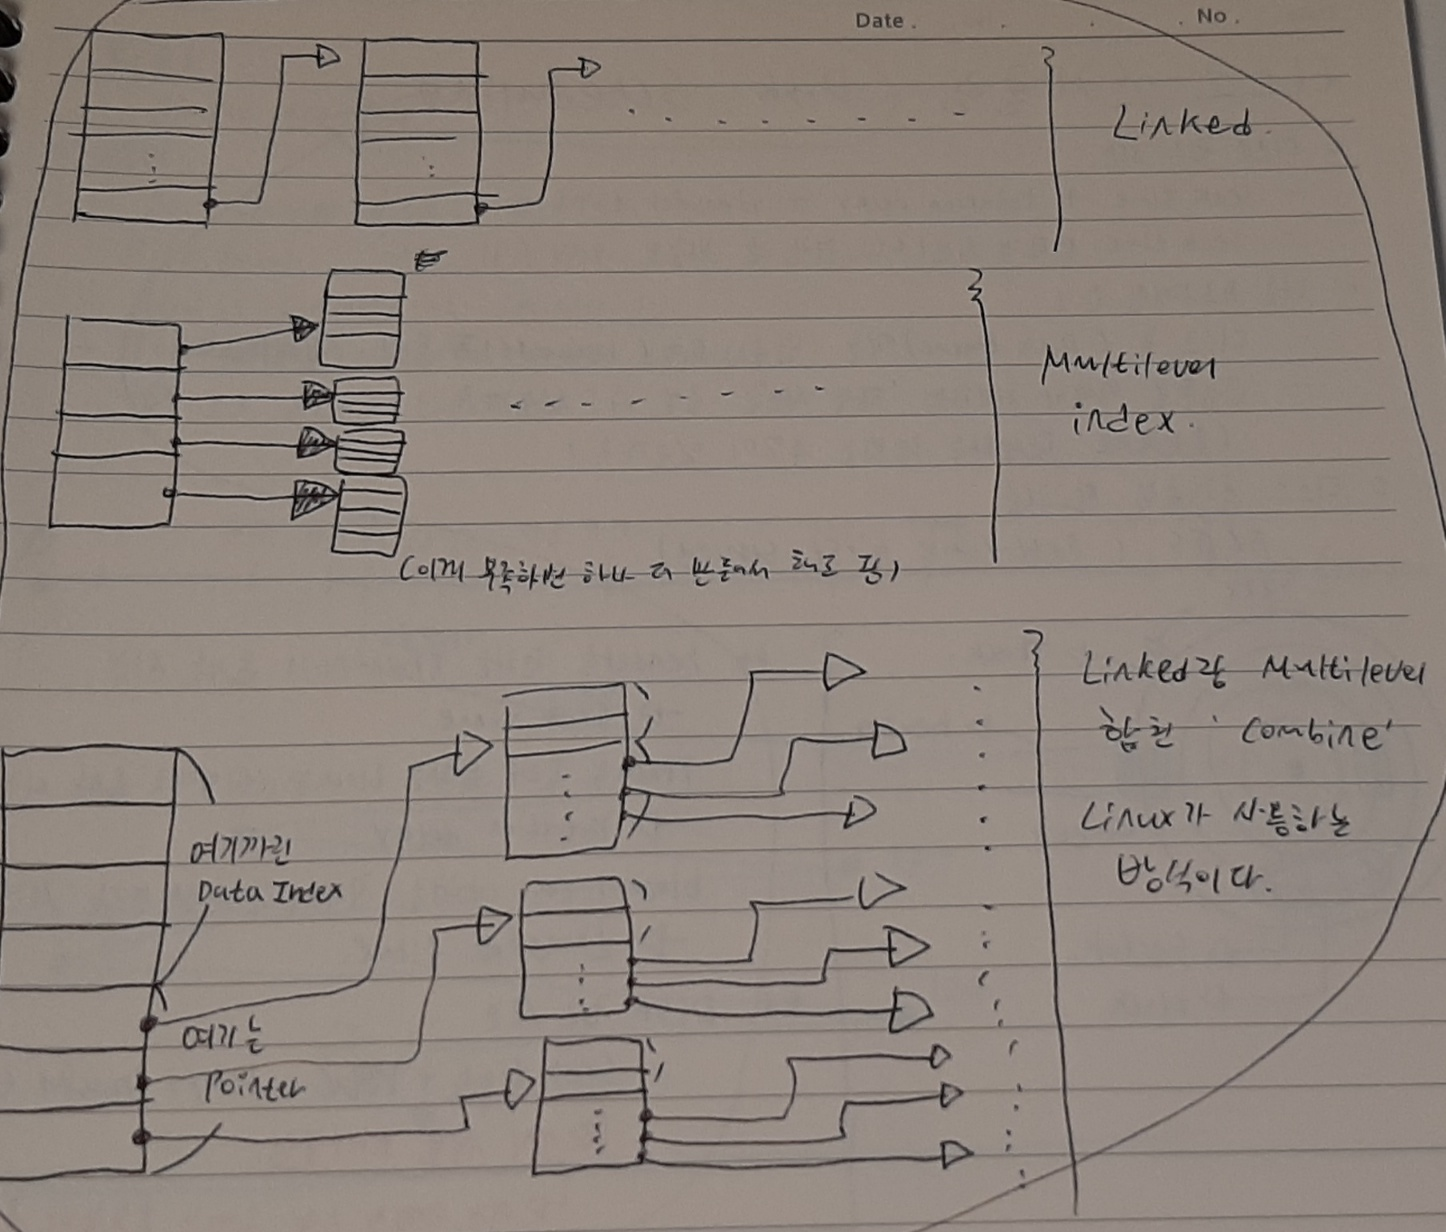 Date . . . . No .
Linked.
Multilevel
index.
(이게 부족하면 하나 더 만들어서 해로 핌)
Linked랑 Multilevel
합친 'Combine'
Linux가 사용하는
방식이다.
여기까진
Data Index
여기는
Pointer